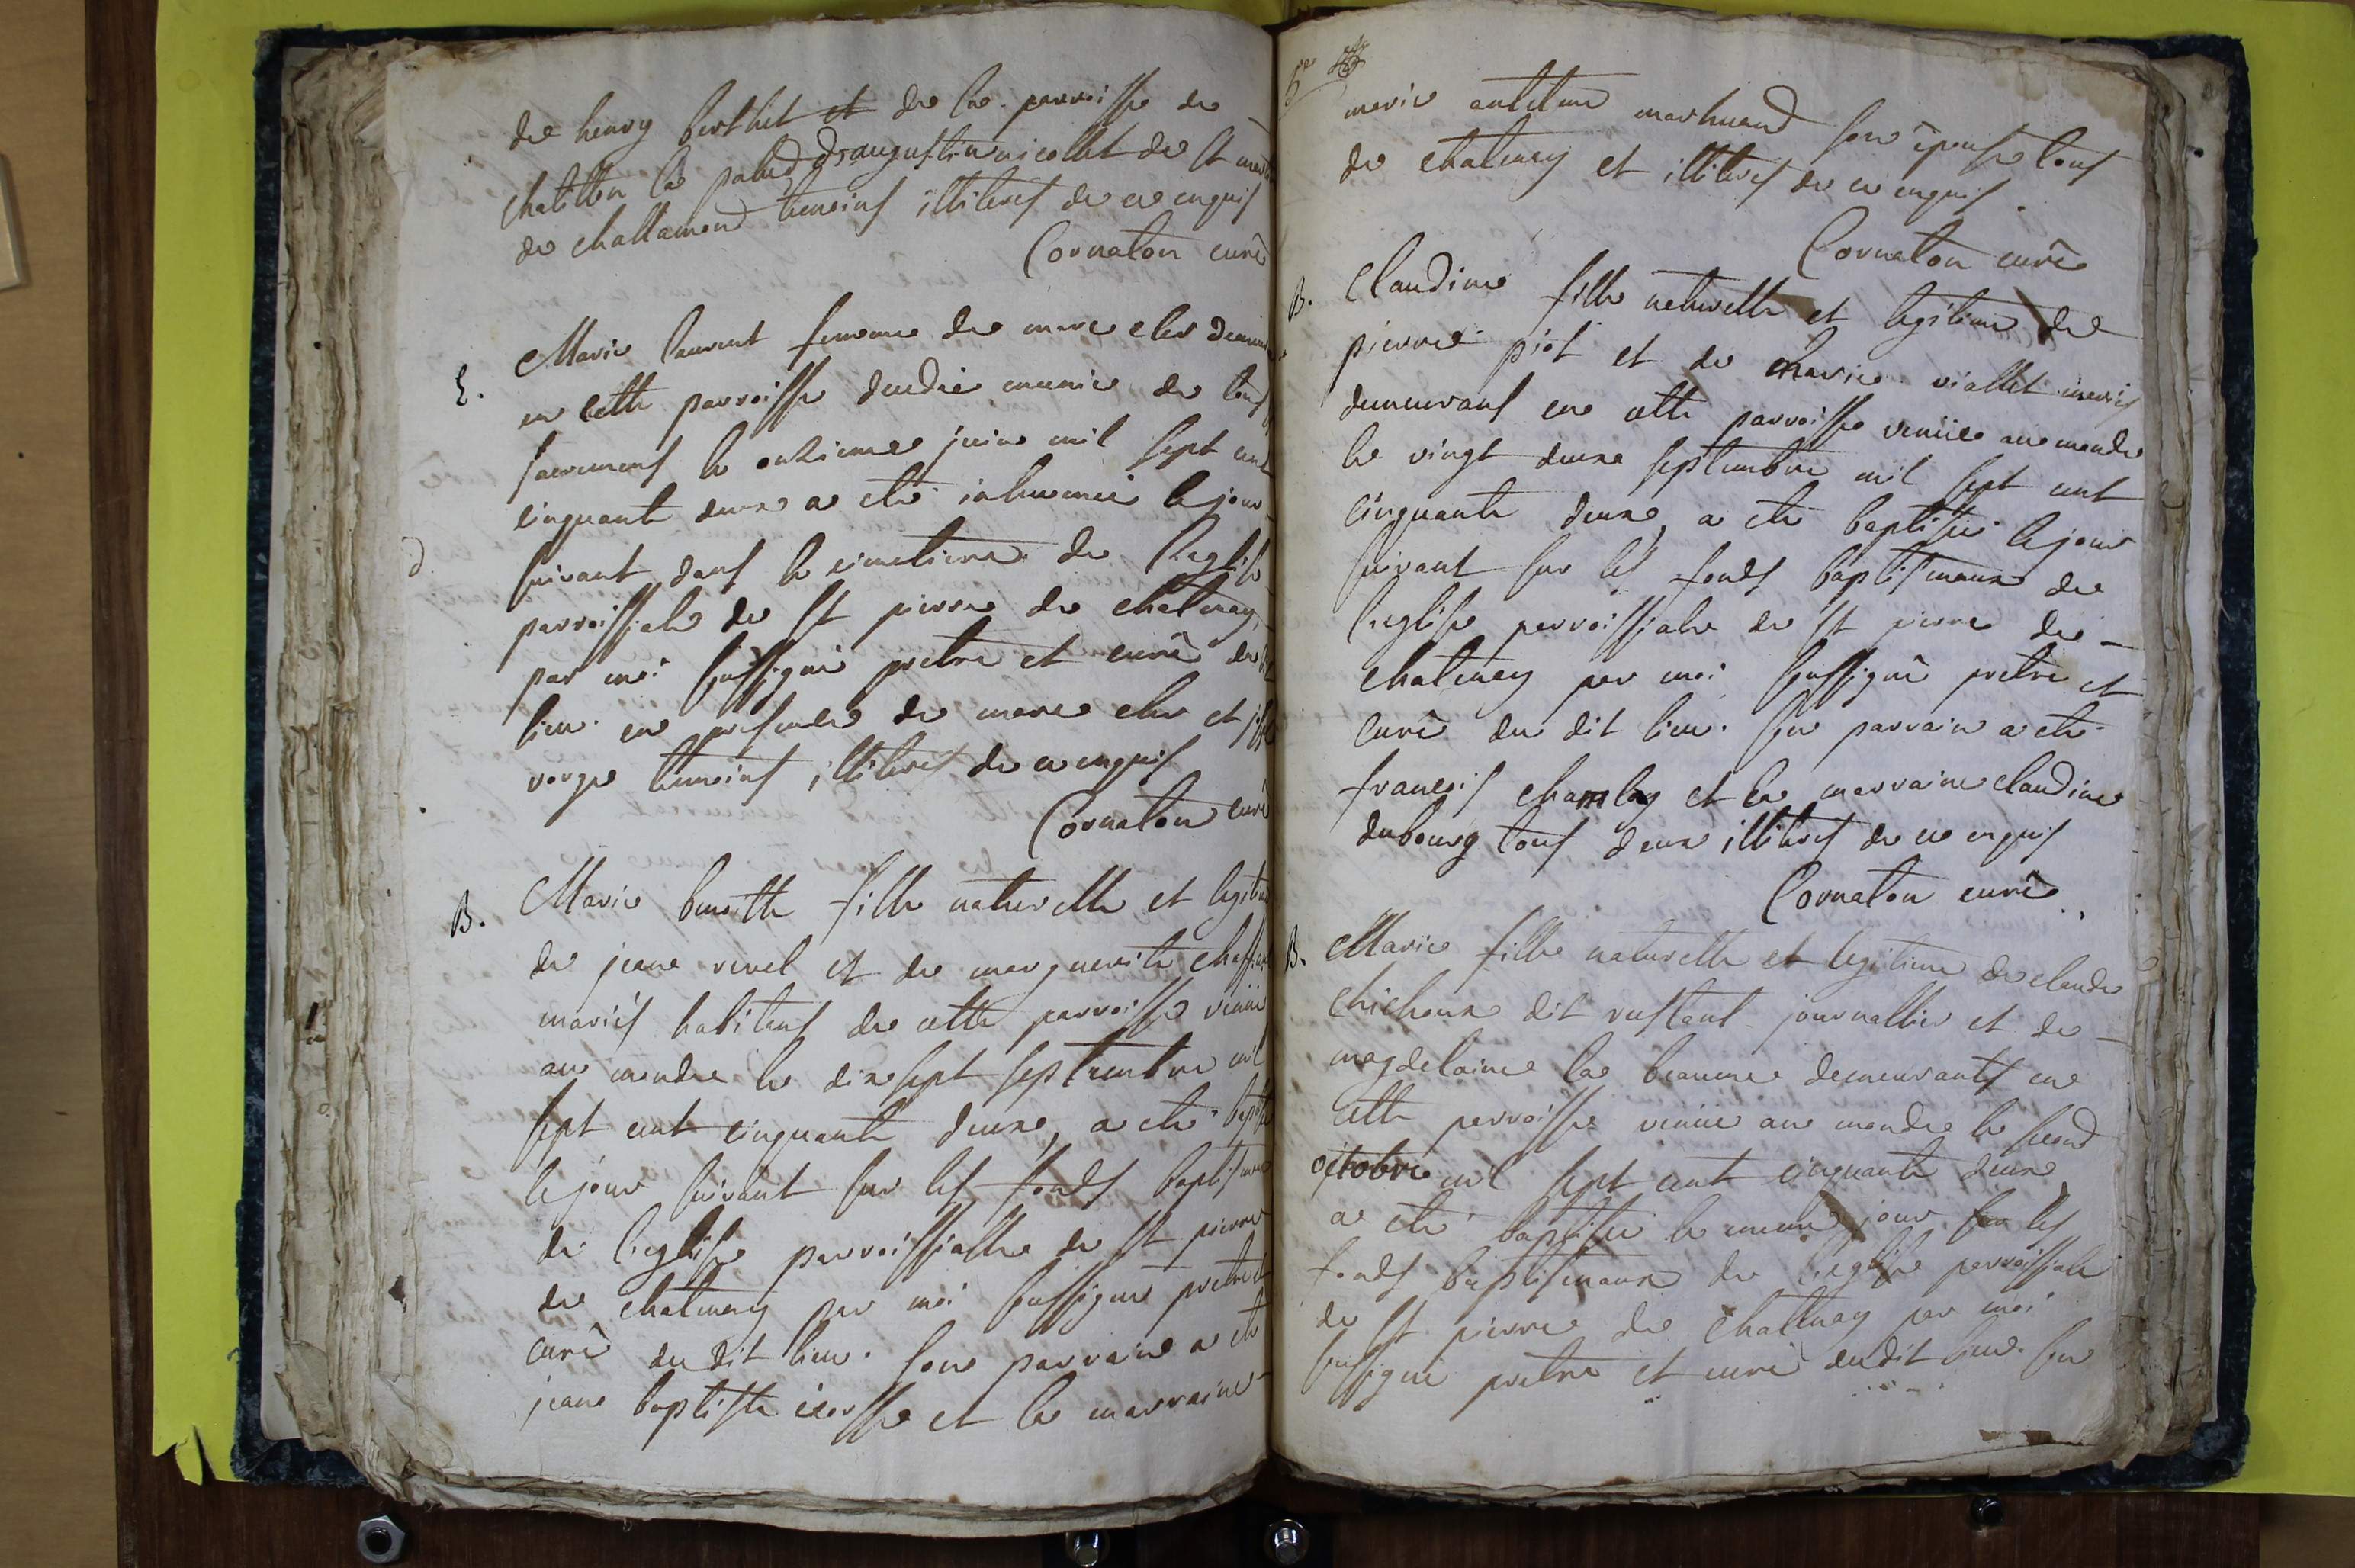 de henry berthet et de la parroisse de
chatillon la palud d'augustin nicollet de St
de challamond temoins illiteres de ce enquis
Cornaton curé
E. Marie laurent femme de marc
en cette parroisse decedée munie de tous
sacremens le onzieme juin mil sept cent
cinquante deux a eté inhumée le jour
suivant dans le cimetiere de l'eglise
parroissiale de St pierre de chatenay
par moi soussigné pretre et curé du
lieu en presence de marc et
temoins illiteres de ce enquis
Cornaton curé
B. Marie benoitte fille naturelle et legitime
de jean revel et de marguerite
mariés habitans de cette parroisse venüe
au monde le dix sept septembre mil
sept cent cinquante deux, a eté baptisée
le jour suivant sur les fonds baptismaux
de l'eglise parroissialle de St pierre
de chatenay par moi soussigné pretre et
curé du dit lieu. son parrain a eté
jean baptiste et la marraine
marie son épouse tous
de chatenay et illiteres de ce enquis.
Cornaton curé
B. Claudine fille naturelle et legitime de
pierre piot et de marie viallet mariés
demeurans en cette parroisse venüe au monde
le vingt deux septembre mil sept cent
cinquante deux, a eté baptisée le jour
suivant sur les fonds baptismaux de
l'eglise parroissiale de St pierre de
chatenay par moi soussigné pretre et
curé du dit lieu. son parrain a eté
francois chamby et la marraine claudine
dubourg tous deux illiteres de ce enquis
Cornaton curé
B. Marie fille naturelle et legitime de claude
dit journallier et de
magdelaine la beaume demeurants en
cette parroisse venüe au monde le second
octobre mil sept cent cinquante deux
a eté baptisée le meme jour sur les
fonds baptismaux de l'eglise parroissiale
de St pierre de chatenay par moi
soussigné pretre et curé dudit lieu. son